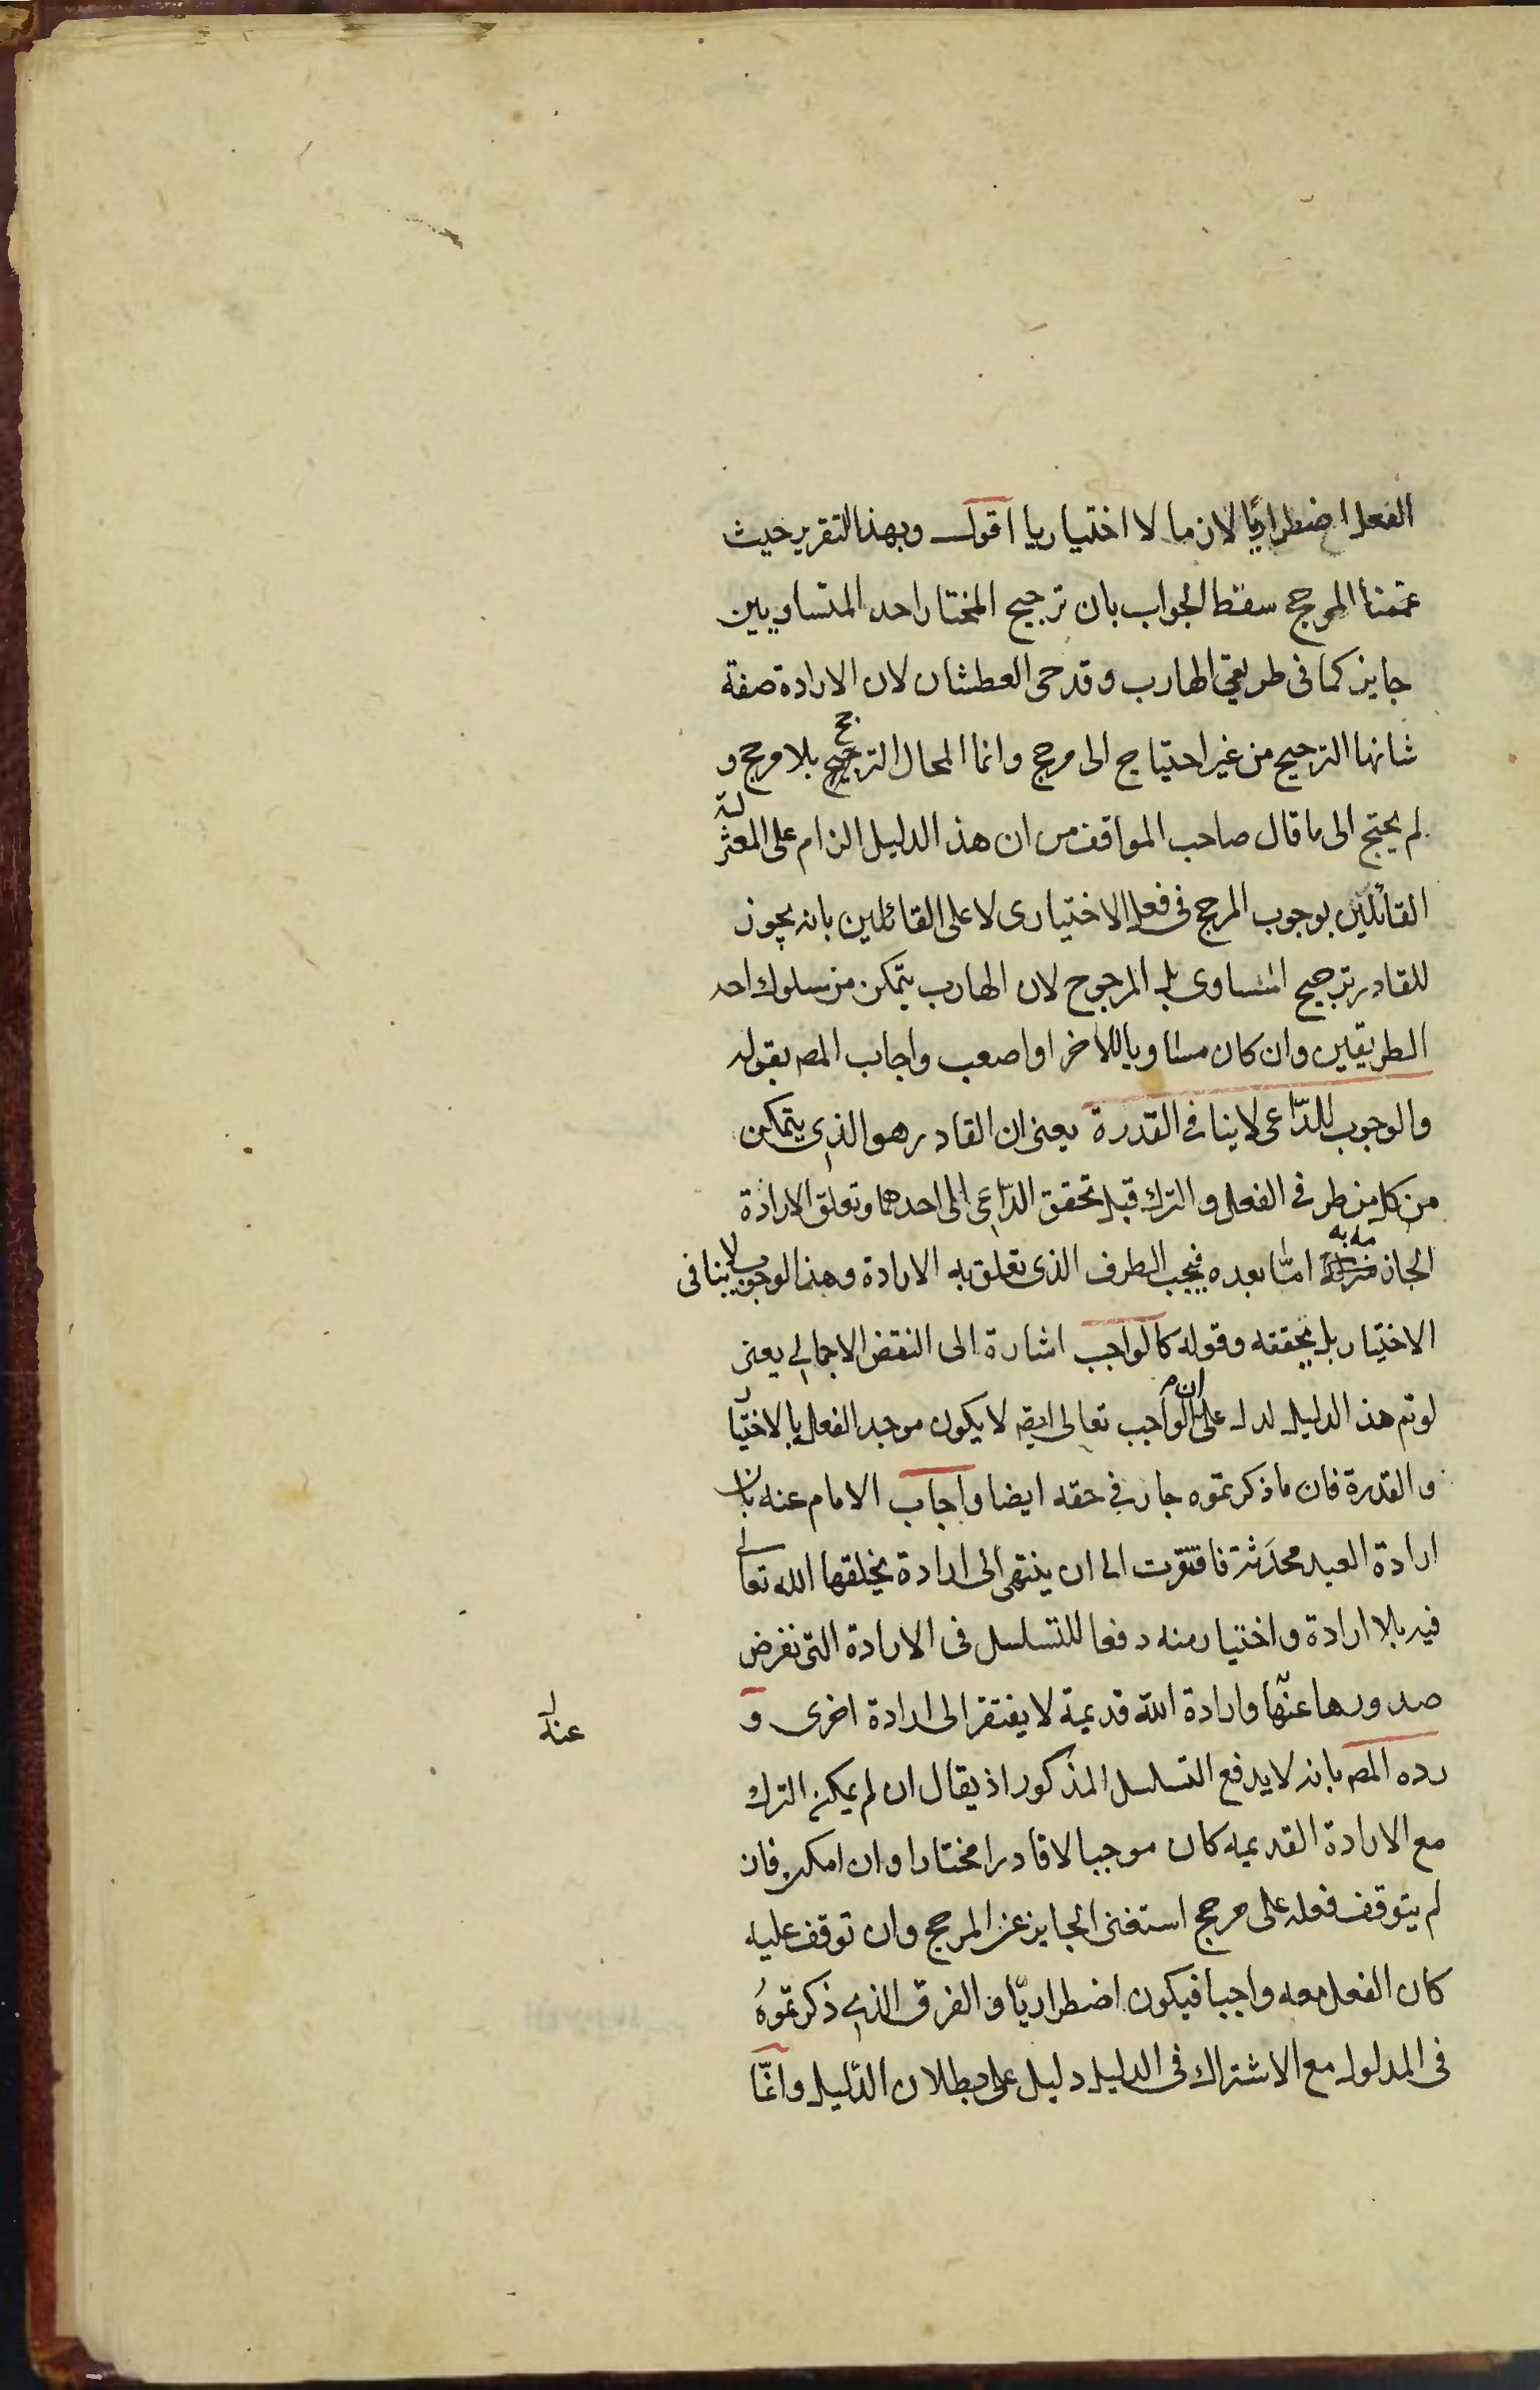 الفعل اضطراريا لان ما لا اختياريا اقول وبهذا التقرير حيث
عممنا المرجح سقط الجواب بان ترجيح المختار احد المتساويين
جايز كما فى طريقي الهارب و قدحى العطشان لان الارادة صفة
شانها الترجيح من غير احتياج الى مرجح وانما المحال الترجح بلا مرجح و
لم يحتج الى ما قال صاحب المواقف من ان هذا الدليل الزام على المعتزلة
القائلين بوجوب المرجح فى فعل الاختيارى لا على القائلين بانه يجوز
للقادر ترجيح المساوى بل المرجوح لان الهارب يتمكن من سلوك احد
الطريقين وان كان مساويا للاخر او اصعب واجاب المصـ بقوله
والوجوب للدّاعى لا ينافى القدرة يعنى ان القادر هو الذي يتمكن
من كل من طرفى الفعل و الترك قبل تحقق الدّاعى الى احدهما وتعلق الارادة
الجازمة به امّا بعده فيجب الطرف الذى تعلق به الارادة وهذا الوجوب لا ينافى
الاختيار بل يحققه وقوله كالواجب اشارة الى النقض الاجمالي يعنى
لو تم هذا الدليل لدل على ان الواجب تعالى ايضـ لا يكون موجد الفعل بالاختيار
و القدرة فان ما ذكرتموه جار في حقه ايضا واجاب الامام عنه بان
ارادة العبد محدَثة فافتقرت الى ان ينتهى الى ارادة يخلقها الله تعالى
فيه بلا ارادة و اختيار منه دفعا للتسلسل فى الارادة التى نفرض
صدورها عنّها وارادة الله قديمة لا يفتقر الى ارادة اخرى و
عنه
رده المصـ بانه لا يدفع التسلسل المذكور اذ يقال ان لم يمكن الترك
مع الارادة القديمه كان موجبا لا قادرا مختارا وان امكن فان
لم يتوقف فعله على مرجح استغنى الجايز عن المرجح وان توقف عليه
كان الفعل معه واجبا فيكون اضطراريّا و الفرق الذي ذكرتموهُ
فى المدلول مع الاشتراك فى الدليل دليل على بطلان الدّليل وانّما